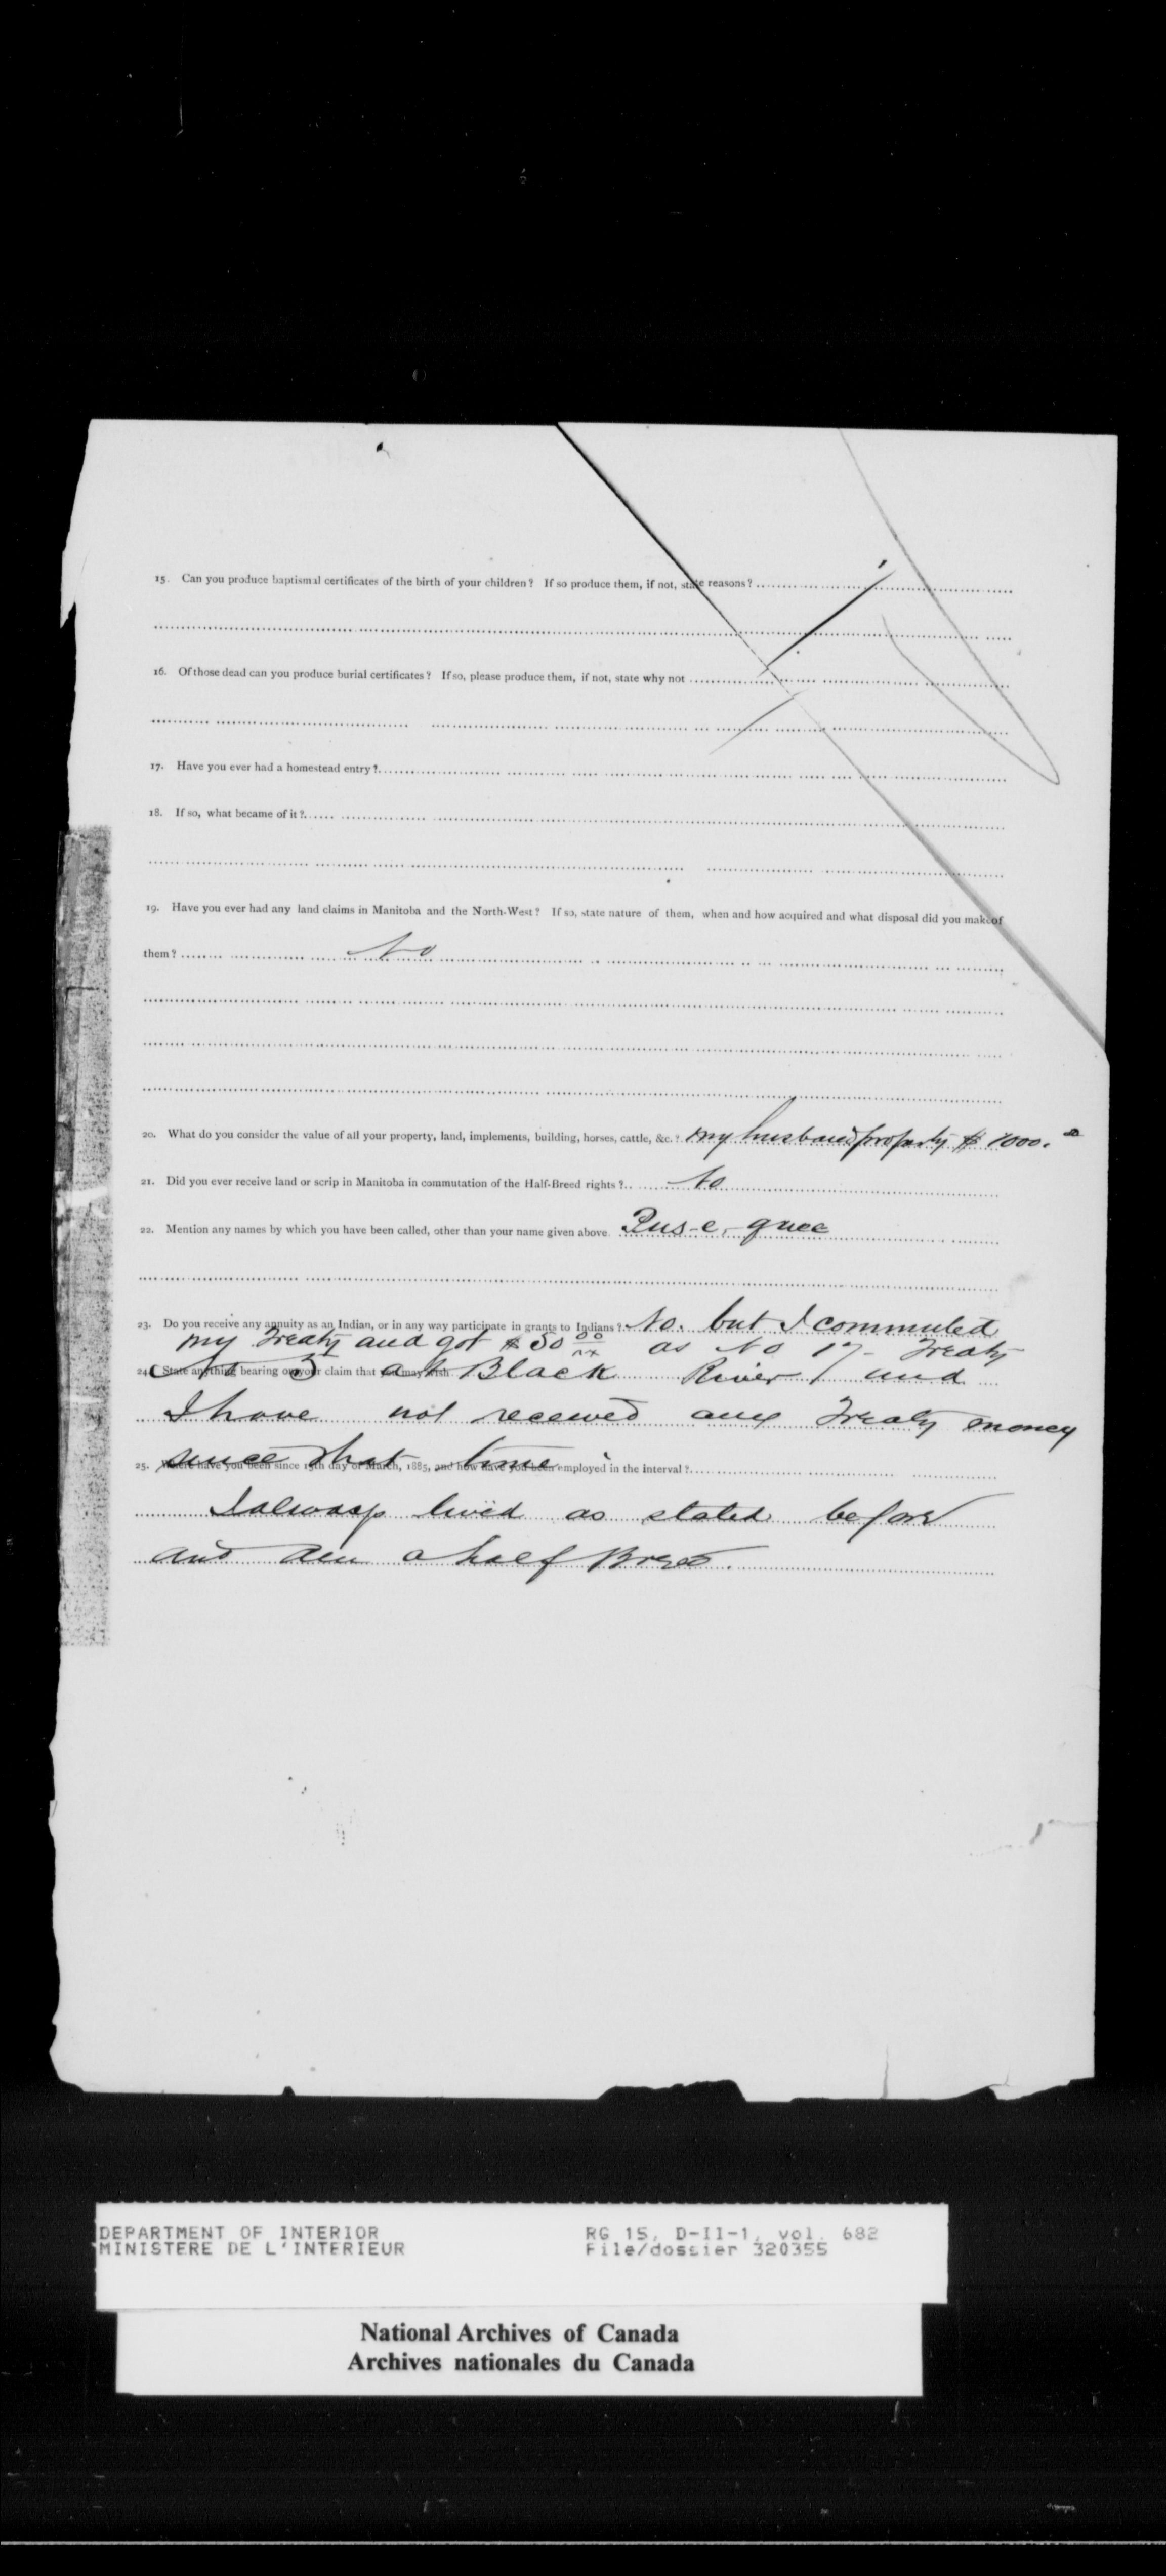 15. Can you produce baptismal certificates of the birth of your children? If so produce them, if not, state reasons?
16. Of those dead can you produce burial certificates? If so, please produce them, if not, state why not
17. Have you ever had a homestead entry?
18. If so, what became of it?
19. Have you ever had any land claims in Manitoba and the North-West? If so, state nature of them, when and how acquired and what disposal did you make of
them? No
20. What do you consider the value of all your property, land, implements, building, horses, cattle, &c.? my husband property $ 1000.
21. Did you ever receive land or scrip in Manitoba in commutation of the Half-Breed rights? No
22. Mention any names by which you have been called, other than your name given above. Pus-e-quee
23. Do you receive any annuity as an Indian, or in any way participate in grants to Indians? No. but I commuted
my Treaty and got $ 50 00/xx as No 17 - Treaty
24. State anything bearing on your claim that you may wish
5 at Black River / and
I have not received any Treaty money
since that time
25. Where have you been since 15th day of March, 1885, and how have you been employed in the interval?
I always lived as stated before
and am a half Breed.
DEPARTMENT OF INTERIOR
MINISTERE DE L'INTERIEUR
RG 15, D-II-1, vol. 682
File/dossier 320355
National Archives of Canada
Archives nationales du Canada